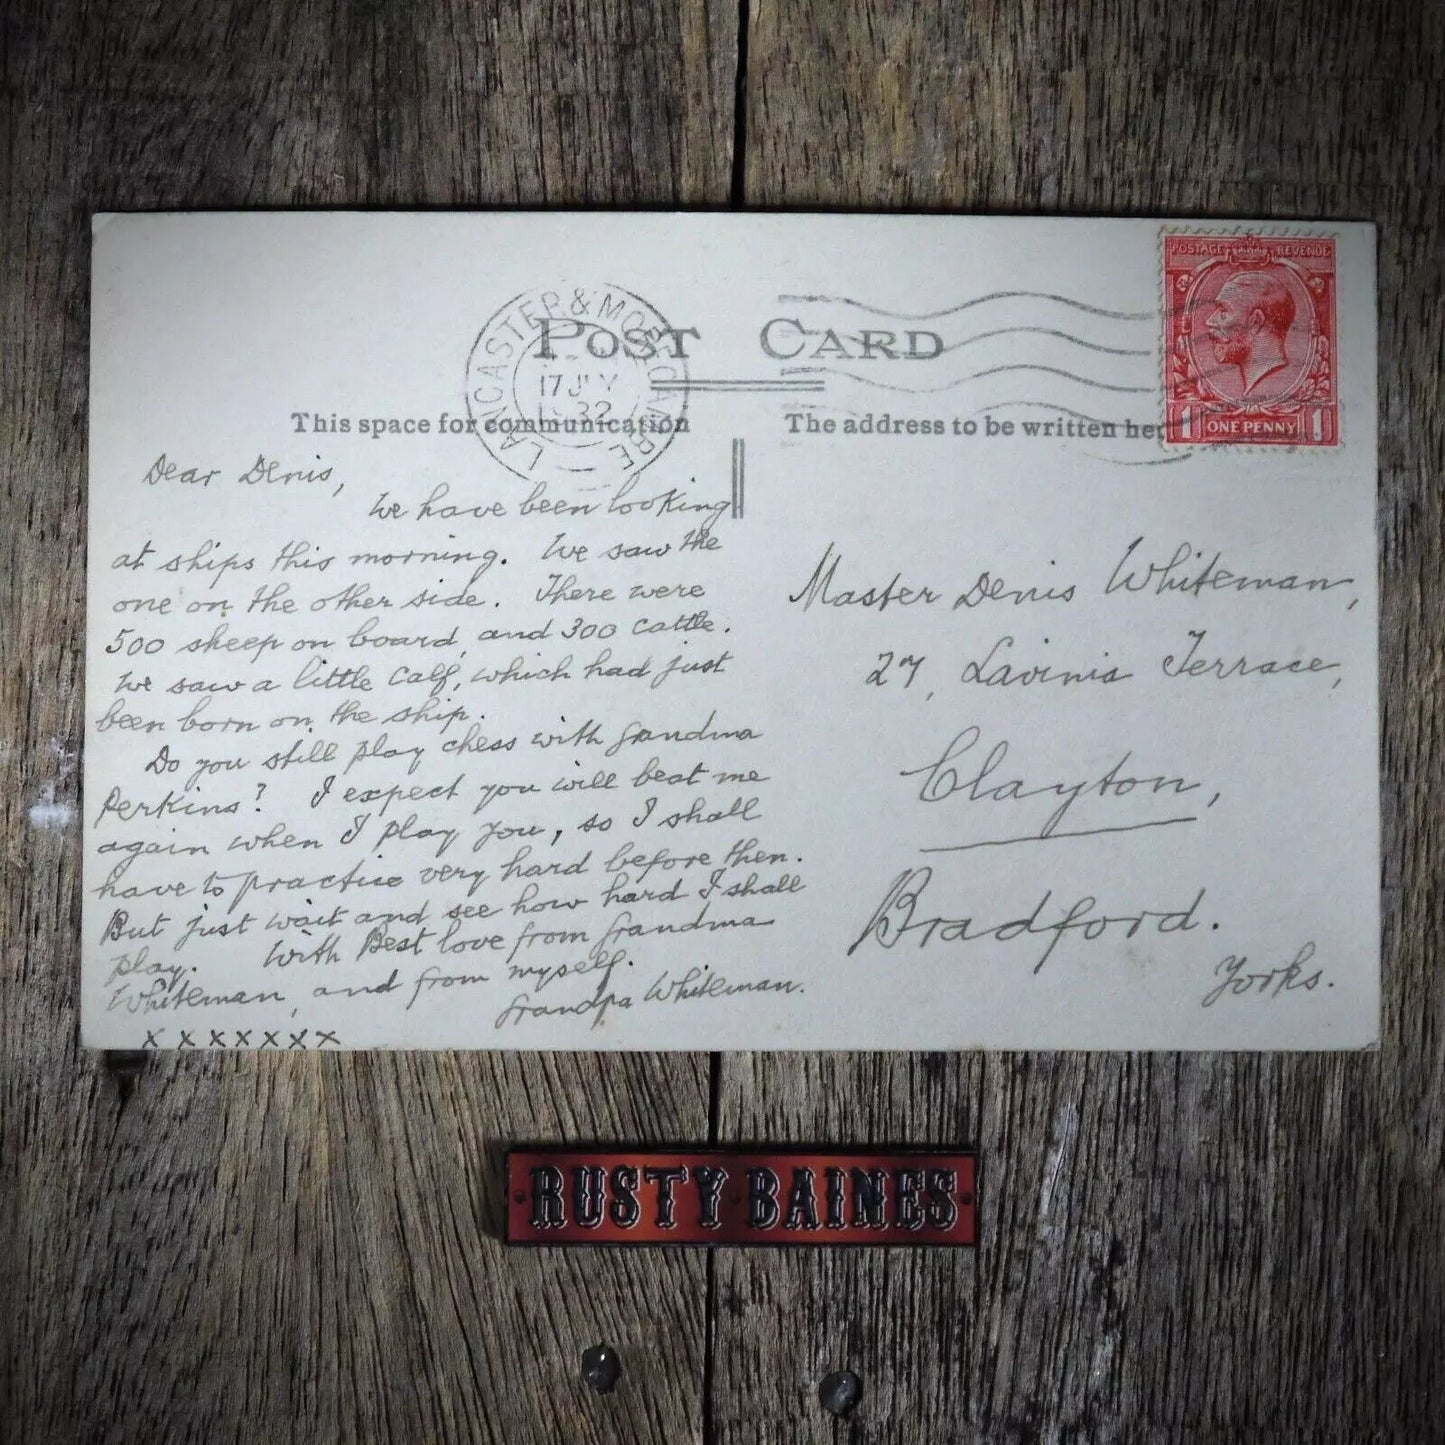 POSTAGE REVENUE
1 ONE PENNY 1
LANCASTER & MORECAMBE
17 JLY
32
POST CARD
This space for communication
The address to be written her
Dear Denis,
We have been looking
at ships this morning. We saw the
one on the other side. There were
500 sheep on board, and 300 cattle.
We saw a little calf, which had just
been born on the ship.
Do you still play chess with Grandma
Perkins? I expect you will beat me
again when I play you, so I shall
have to practice very hard before then.
But just wait and see how hard I shall
play. With Best love from Grandma
Whiteman, and from myself.
Grandpa Whiteman.
x x x x x x x
Master Denis Whiteman,
27, Lavinia Terrace,
Clayton,
Bradford.
Yorks.
RUSTY BAINES